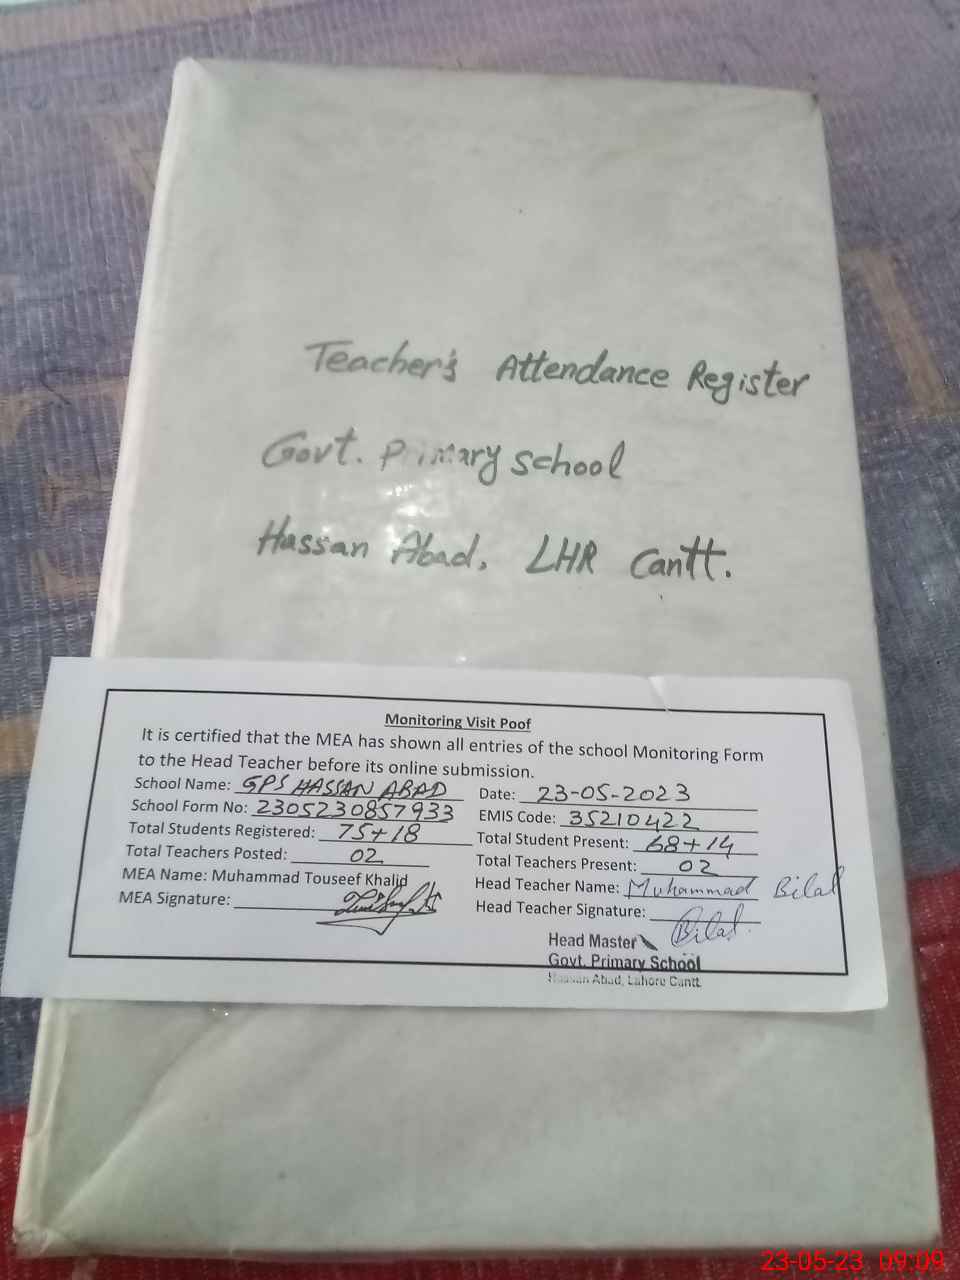 Teacher's Attendance Register
Govt. Primary school
Hassan Abad, LHR Cantt.
Monitoring Visit Poof
It is certified that the MEA has shown all entries of the school Monitoring Form
to the Head Teacher before its online submission.
School Name: GPS HASSAN ABAD
Date: 23-05-2023
School Form No: 2305230857933
EMIS Code: 35210422
Total Students Registered: 75+18
Total Student Present: 68+14
Total Teachers Posted: 02
Total Teachers Present: 02
MEA Name: Muhammad Touseef Khalid
Head Teacher Name: Muhammad Bilal
MEA Signature:
Head Teacher Signature: Bilal.
Head Master
Govt. Primary School
Hassan Abad, Lahore Cantt.
23-05-23 09:09